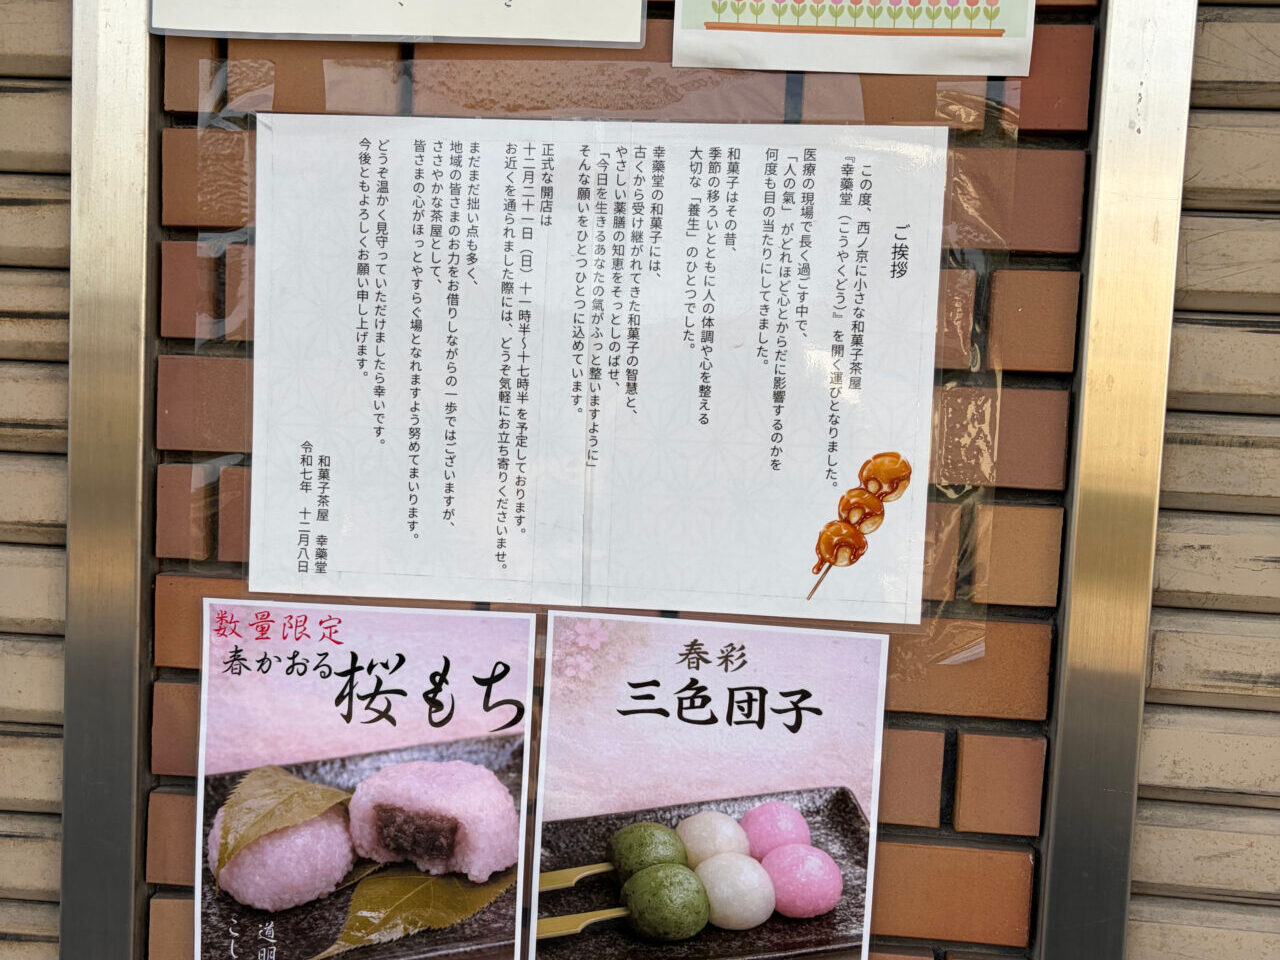 ご挨拶
この度、西ノ京に小さな和菓子茶屋
『幸藥堂（こうやくどう）』を開く運びとなりました。
医療の現場で長く過ごす中で、
「人の氣」がどれほど心とからだに影響するのかを
何度も目の当たりにしてきました。
和菓子はその昔、
季節の移ろいとともに人の体調や心を整える
大切な「養生」のひとつでした。
幸藥堂の和菓子には、
古くから受け継がれてきた和菓子の智慧と、
やさしい薬膳の知恵をそっとしのばせ、
「今日を生きるあなたの氣がふっと整いますように」
そんな願いをひとつひとつに込めています。
正式な開店は
十二月二十一日（日）十一時半～十七時半を予定しております。
お近くを通られました際には、どうぞ気軽にお立ち寄りくださいませ。
まだまだ拙い点も多く、
地域の皆さまのお力をお借りしながらの一歩ではございますが、
ささやかな茶屋として、
皆さまの心がほっとやすらぐ場となれますよう努めてまいります。
どうぞ温かく見守っていただけましたら幸いです。
今後ともよろしくお願い申し上げます。
和菓子茶屋 幸藥堂
令和七年 十二月八日
数量限定
春かおる桜もち
道明
こし
春彩
三色団子